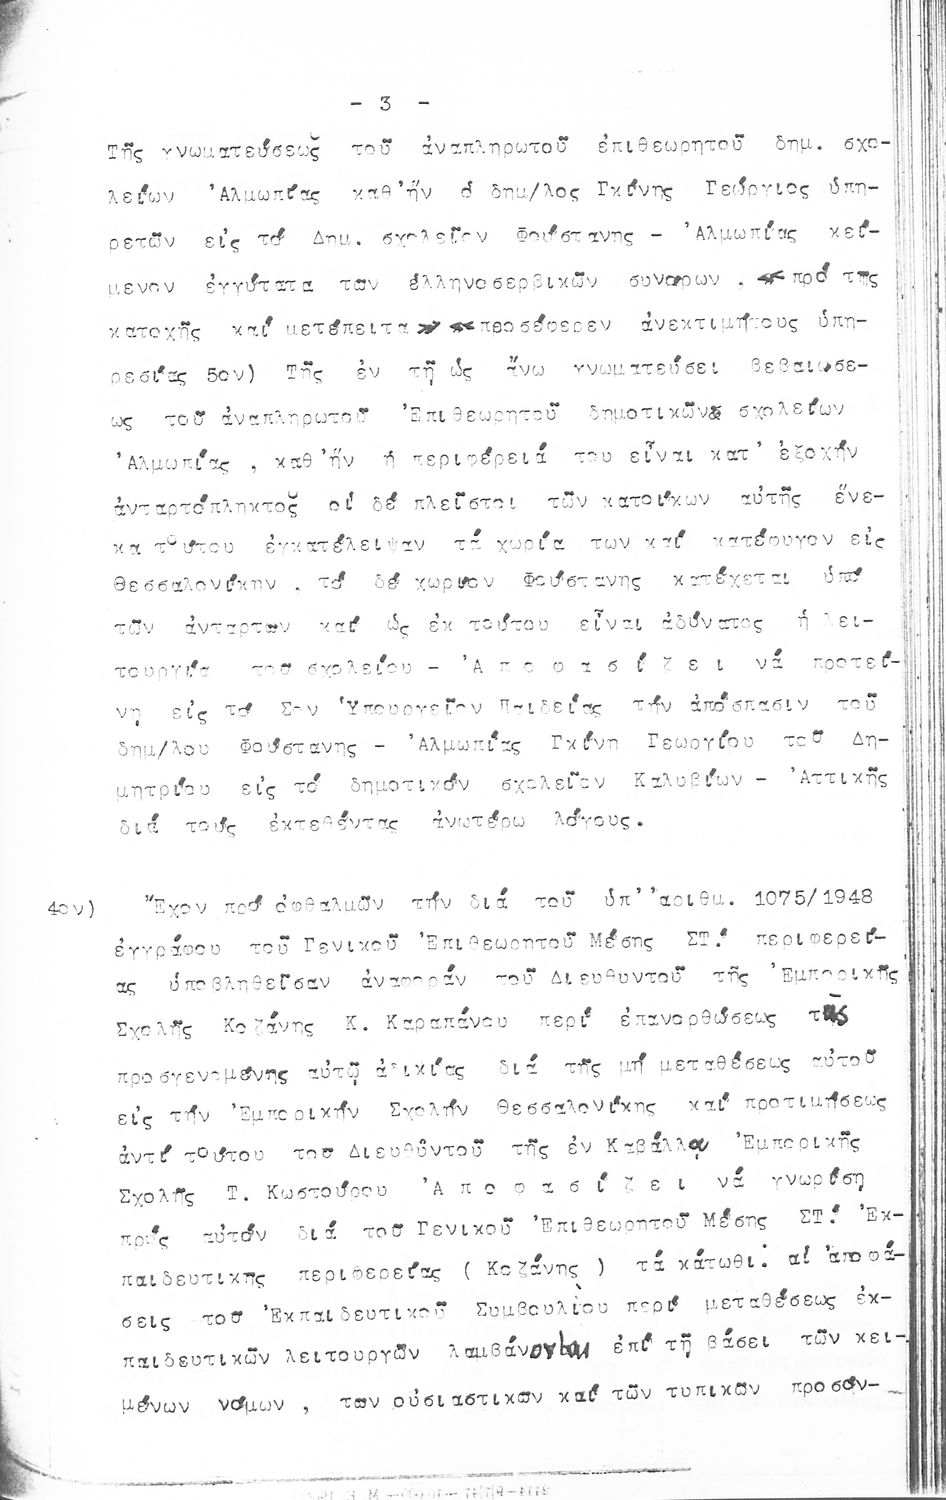 - 3 -
Τῆς γνωματεύσεως τοῦ ἀναπληρωτοῦ ἐπιθεωρητοῦ δημ. σχο-
λείων 'Αλμωπίας καθ'ἥν ὁ δημ/λος Γκίνης Γεώργιος ὑπη-
ρετῶν εἰς τό Δημ. σχολεῖον Φούστανης - 'Αλμωπίας κεί-
μενον ἐγγύτατα των ἑλληνοσερβικῶν συνορων , « πρό της
κατοχῆς καί μετέπειτα » « προσέφερεν ἀνεκτιμήτους ὑπη-
ρεσίας 5ον) Τῆς ἐν τῇ ὡς ἄνω γνωματεύσει βεβαιωσε-
ως τοῦ ἀναπληρωτοῦ 'Επιθεωρητοῦ δημοτικῶν σχολείων
'Αλμωπίας , καθ'ἥν ἡ περιφέρειά του εἶναι κατ' ἐξοχήν
ἀνταρτόπληκτος οἱ δέ πλεῖστοι τῶν κατοίκων αὐτῆς ἕνε-
κα τούτου ἐγκατέλειψαν τά χωρία των καί κατέφυγον εἰς
Θεσσαλονίκην , τό δέ χωριον Φούστανης κατέχεται ὑπό
τῶν ἀνταρτων καί ὡς ἐκ τούτου εἶναι ἀδύνατος ἡ λει-
τουργία του σχολείου - 'Α π ο φ α σ ί ζ ε ι νά προτεί-
νῃ εἰς τό Σον Ὑπουργεῖον Παιδείας τήν ἀπόσπασιν τοῦ
δημ/λου Φούστανης - 'Αλμωπίας Γκίνη Γεωργίου τοῦ Δη-
μητρίου εἰς τό δημοτικόν σχολεῖον Καλυβίων - 'Αττικῆς
διά τούς ἐκτεθέντας ἀνωτέρω λόγους.
4ον) Ἔχον πρό ὀφθαλμῶν τήν διά τοῦ ὑπ' 'αριθμ. 1075/1948
ἐγγράφου τοῦ Γενικοῦ 'Επιθεωρητοῦ Μέσης ΣΤ.' περιφερεί-
ας ὑποβληθεῖσαν ἀναφοράν τοῦ Διευθυντοῦ τῆς 'Εμπορικῆς
Σχολῆς Κοζάνης Κ. Καραπάνου περί ἐπανορθώσεως τῆς
προσγενομένης αὐτῷ ἀδικίας διά τῆς μή μεταθέσεως αὐτοῦ
εἰς τήν 'Εμπορικήν Σχολήν Θεσσαλονίκης καί προτιμήσεως
ἀντί τούτου του Διευθυντοῦ τῆς ἐν Καβάλλᾳ 'Εμπορικῆς
Σχολῆς Τ. Κωστούρου 'Α π ο φ α σ ί ζ ε ι νά γνωρίσῃ
πρός αὐτόν διά τοῦ Γενικοῦ 'Επιθεωρητοῦ Μέσης ΣΤ.' 'Εκ-
παιδευτικης περιφερείας ( Κοζάνης ) τά κάτωθι: αἱ 'αποφά-
σεις τοῦ 'Εκπαιδευτικοῦ Συμβουλίου περί μεταθέσεως ἐκ-
παιδευτικῶν λειτουργῶν λαμβάνονται ἐπί τῇ βάσει τῶν κει-
μένων νόμων , των οὐσιαστικων καί τῶν τυπικῶν προσόν-